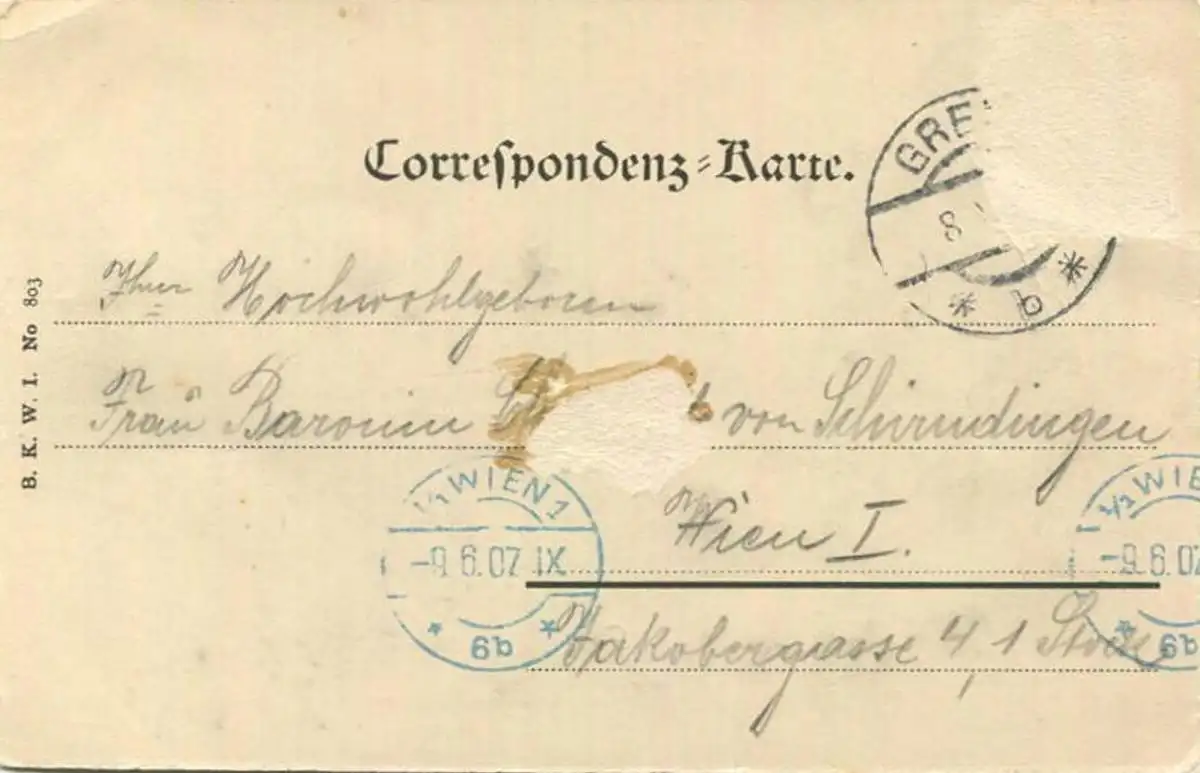 Correſpondenz-Karte.
GRE
8
* b *
B. K. W. I. No 803
Ihrer Hochwohlgeboren
Frau Baronin von Schirndingen
Wien I.
¼ WIEN 1
-9.6.07 IX
* 6b *
Jakobergasse 4, 1 Stock
½ WIE
-9.6.07
* 6b